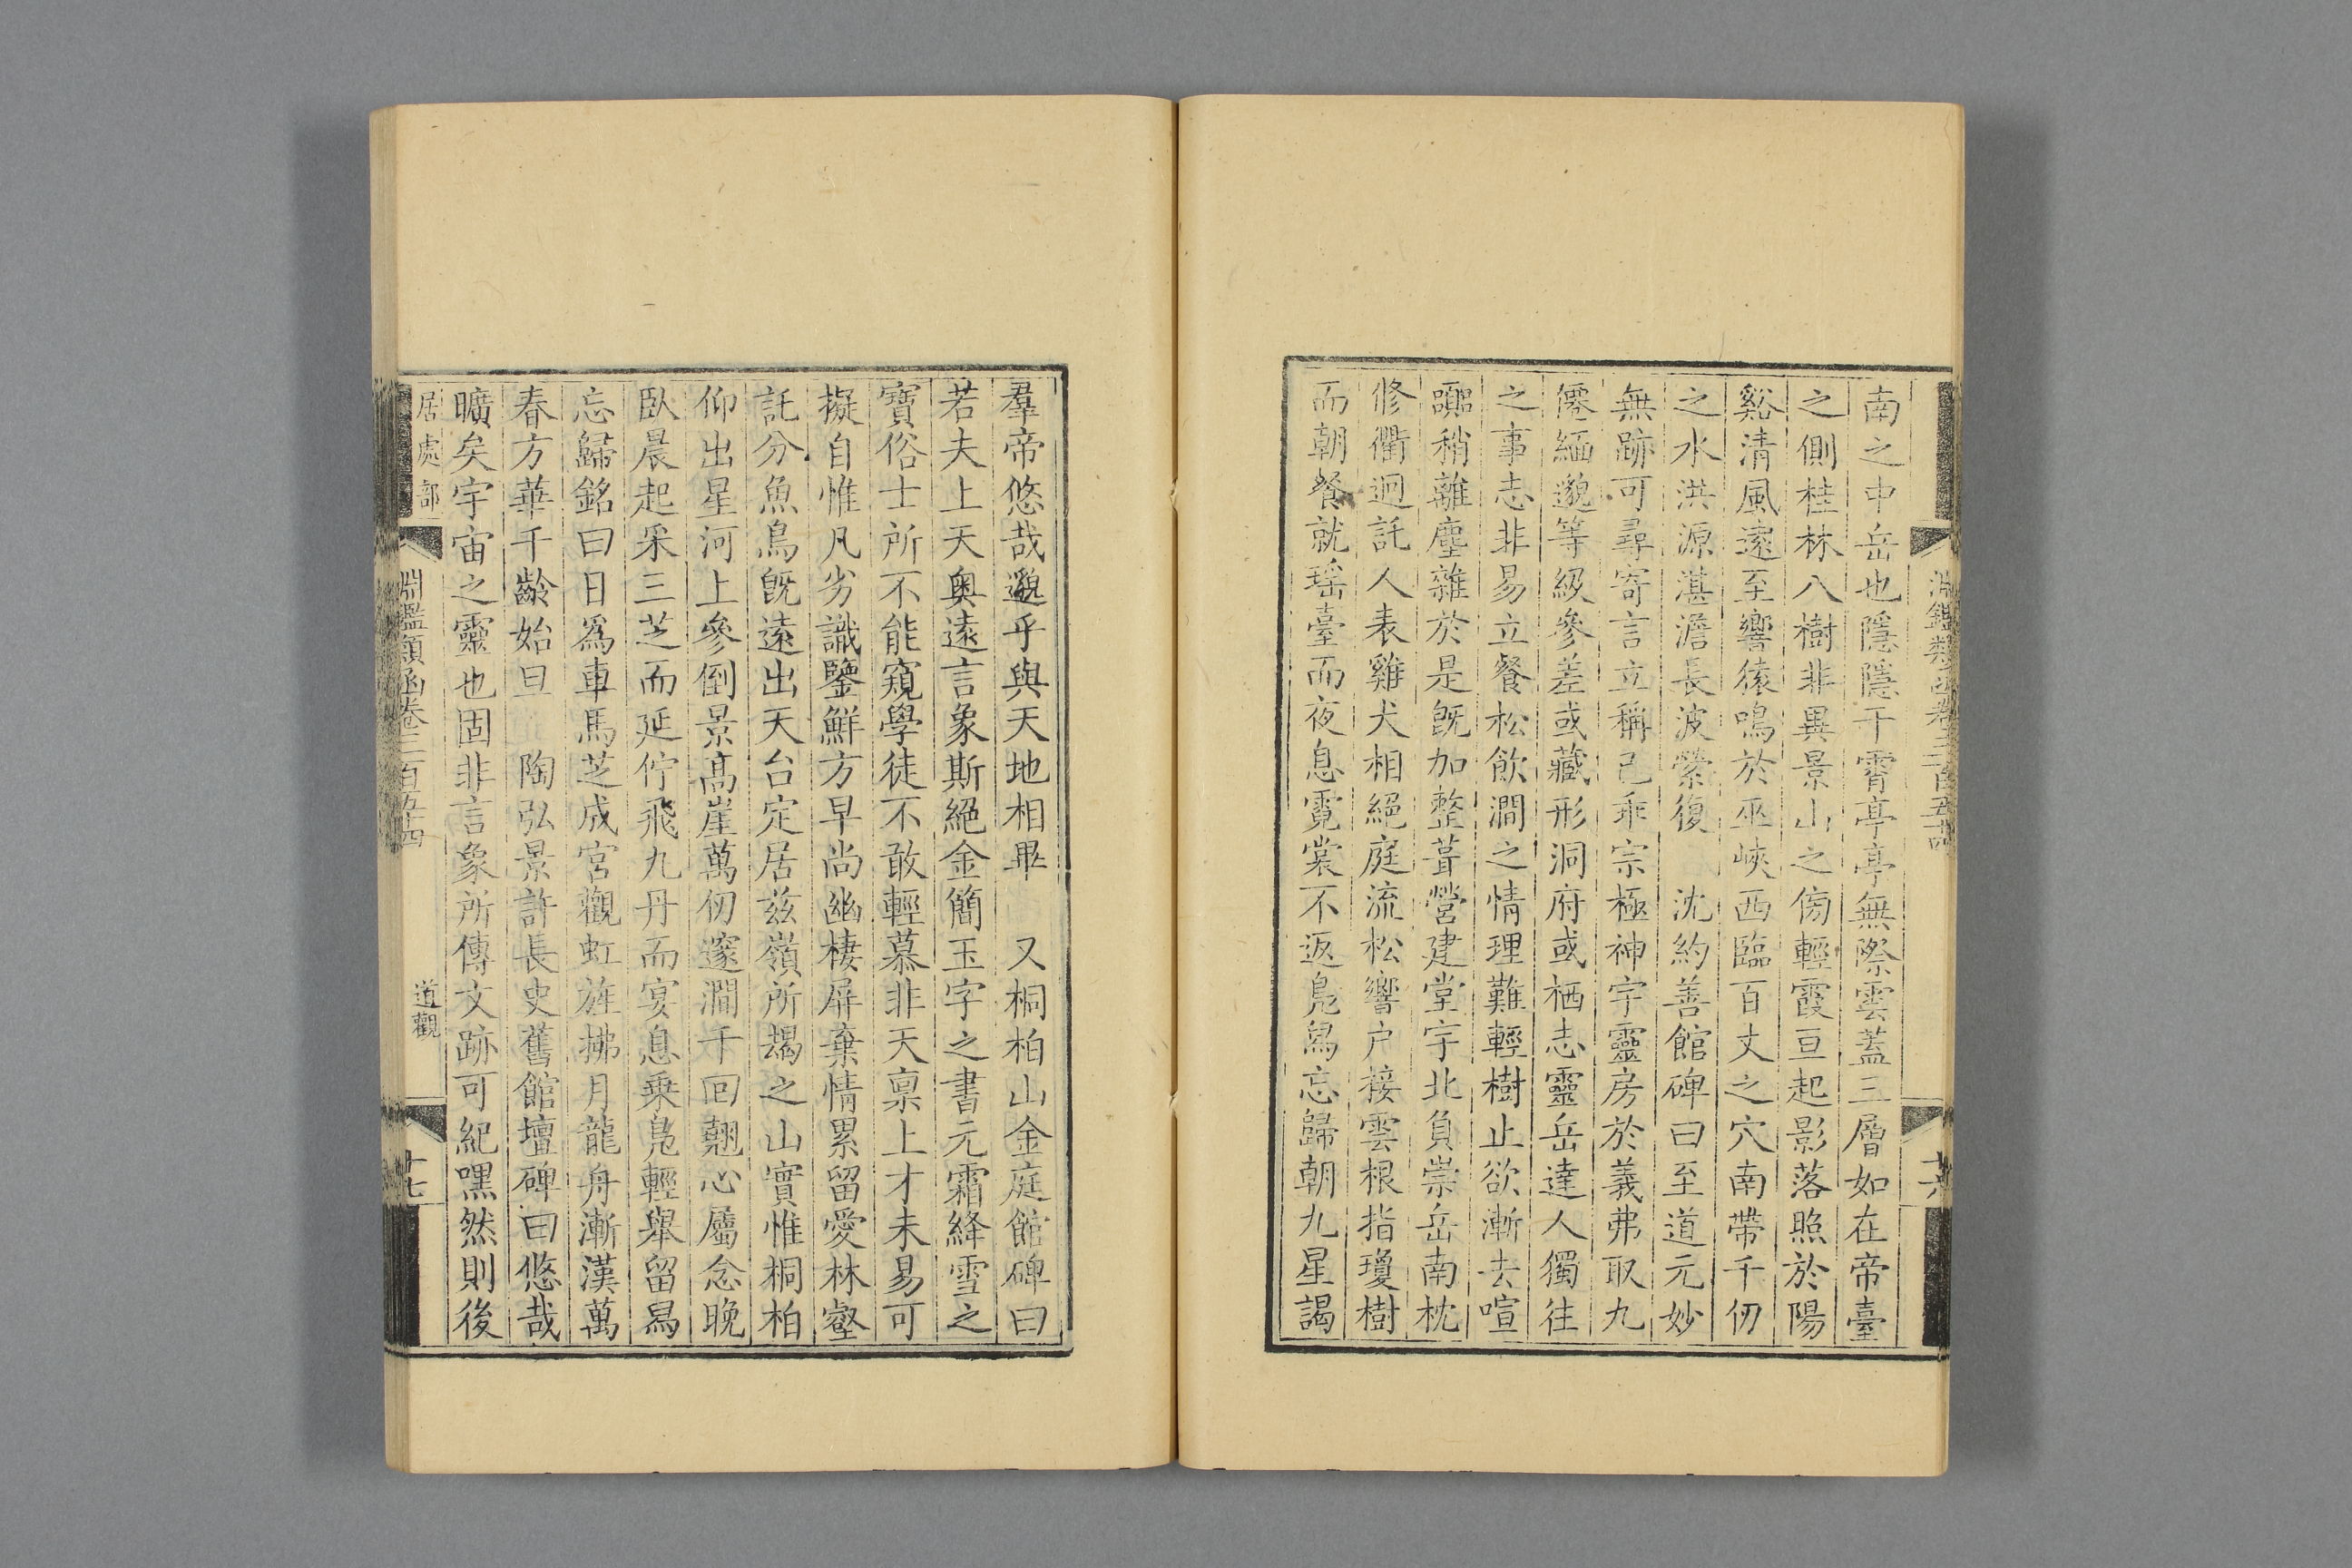 淵鑑類函卷三百五十四
十六
南之中岳也隱隱干霄亭亭無際雲蓋三層如在帝臺
之側桂林八樹非異景山之傍輕霞亘起影落照於陽
谿清風遠至響猿鳴於巫峽西臨百丈之穴南帶千仞
之水洪源湛澹長波縈復 沈約善館碑曰至道元妙
無跡可尋寄言立稱已乖宗極神宇靈房於義弗取九
僊緬邈等級參差或藏形洞府或栖志靈岳達人獨往
之事志非易立餐松飲澗之情理難輕樹止欲漸去喧
囂稍離塵雜於是既加整葺營建堂宇北負崇岳南枕
修衢迥託人表雞犬相絕庭流松響户接雲根指瓊樹
而朝餐就瑤臺而夜息霓裳不返鳧舄忘歸朝九星謁
羣帝悠哉邈乎與天地相畢 又桐柏山金庭館碑曰
若夫上天奧遠言象斯絕金簡玉字之書元霜絳雪之
寶俗士所不能窺學徒不敢輕慕非天稟上才未易可
擬自惟凡劣識鑒鮮方早尚幽棲屏棄情累留愛林壑
託分魚鳥既遠出天台定居茲嶺所憩之山實惟桐柏
仰出星河上參倒景高崖萬仞邃澗千回翹心屬念晚
臥晨起采三芝而延佇飛九丹而宴息乘鳧輕舉留舄
忘歸銘曰日爲車馬芝成宮觀虹旌拂月龍舟漸漢萬
春方華千齡始旦 陶弘景許長史舊館壇碑曰悠哉
曠矣宇宙之靈也固非言象所傳文跡可紀嘿然則後
居處部
淵鑑類函卷三百五十四
道觀
十七